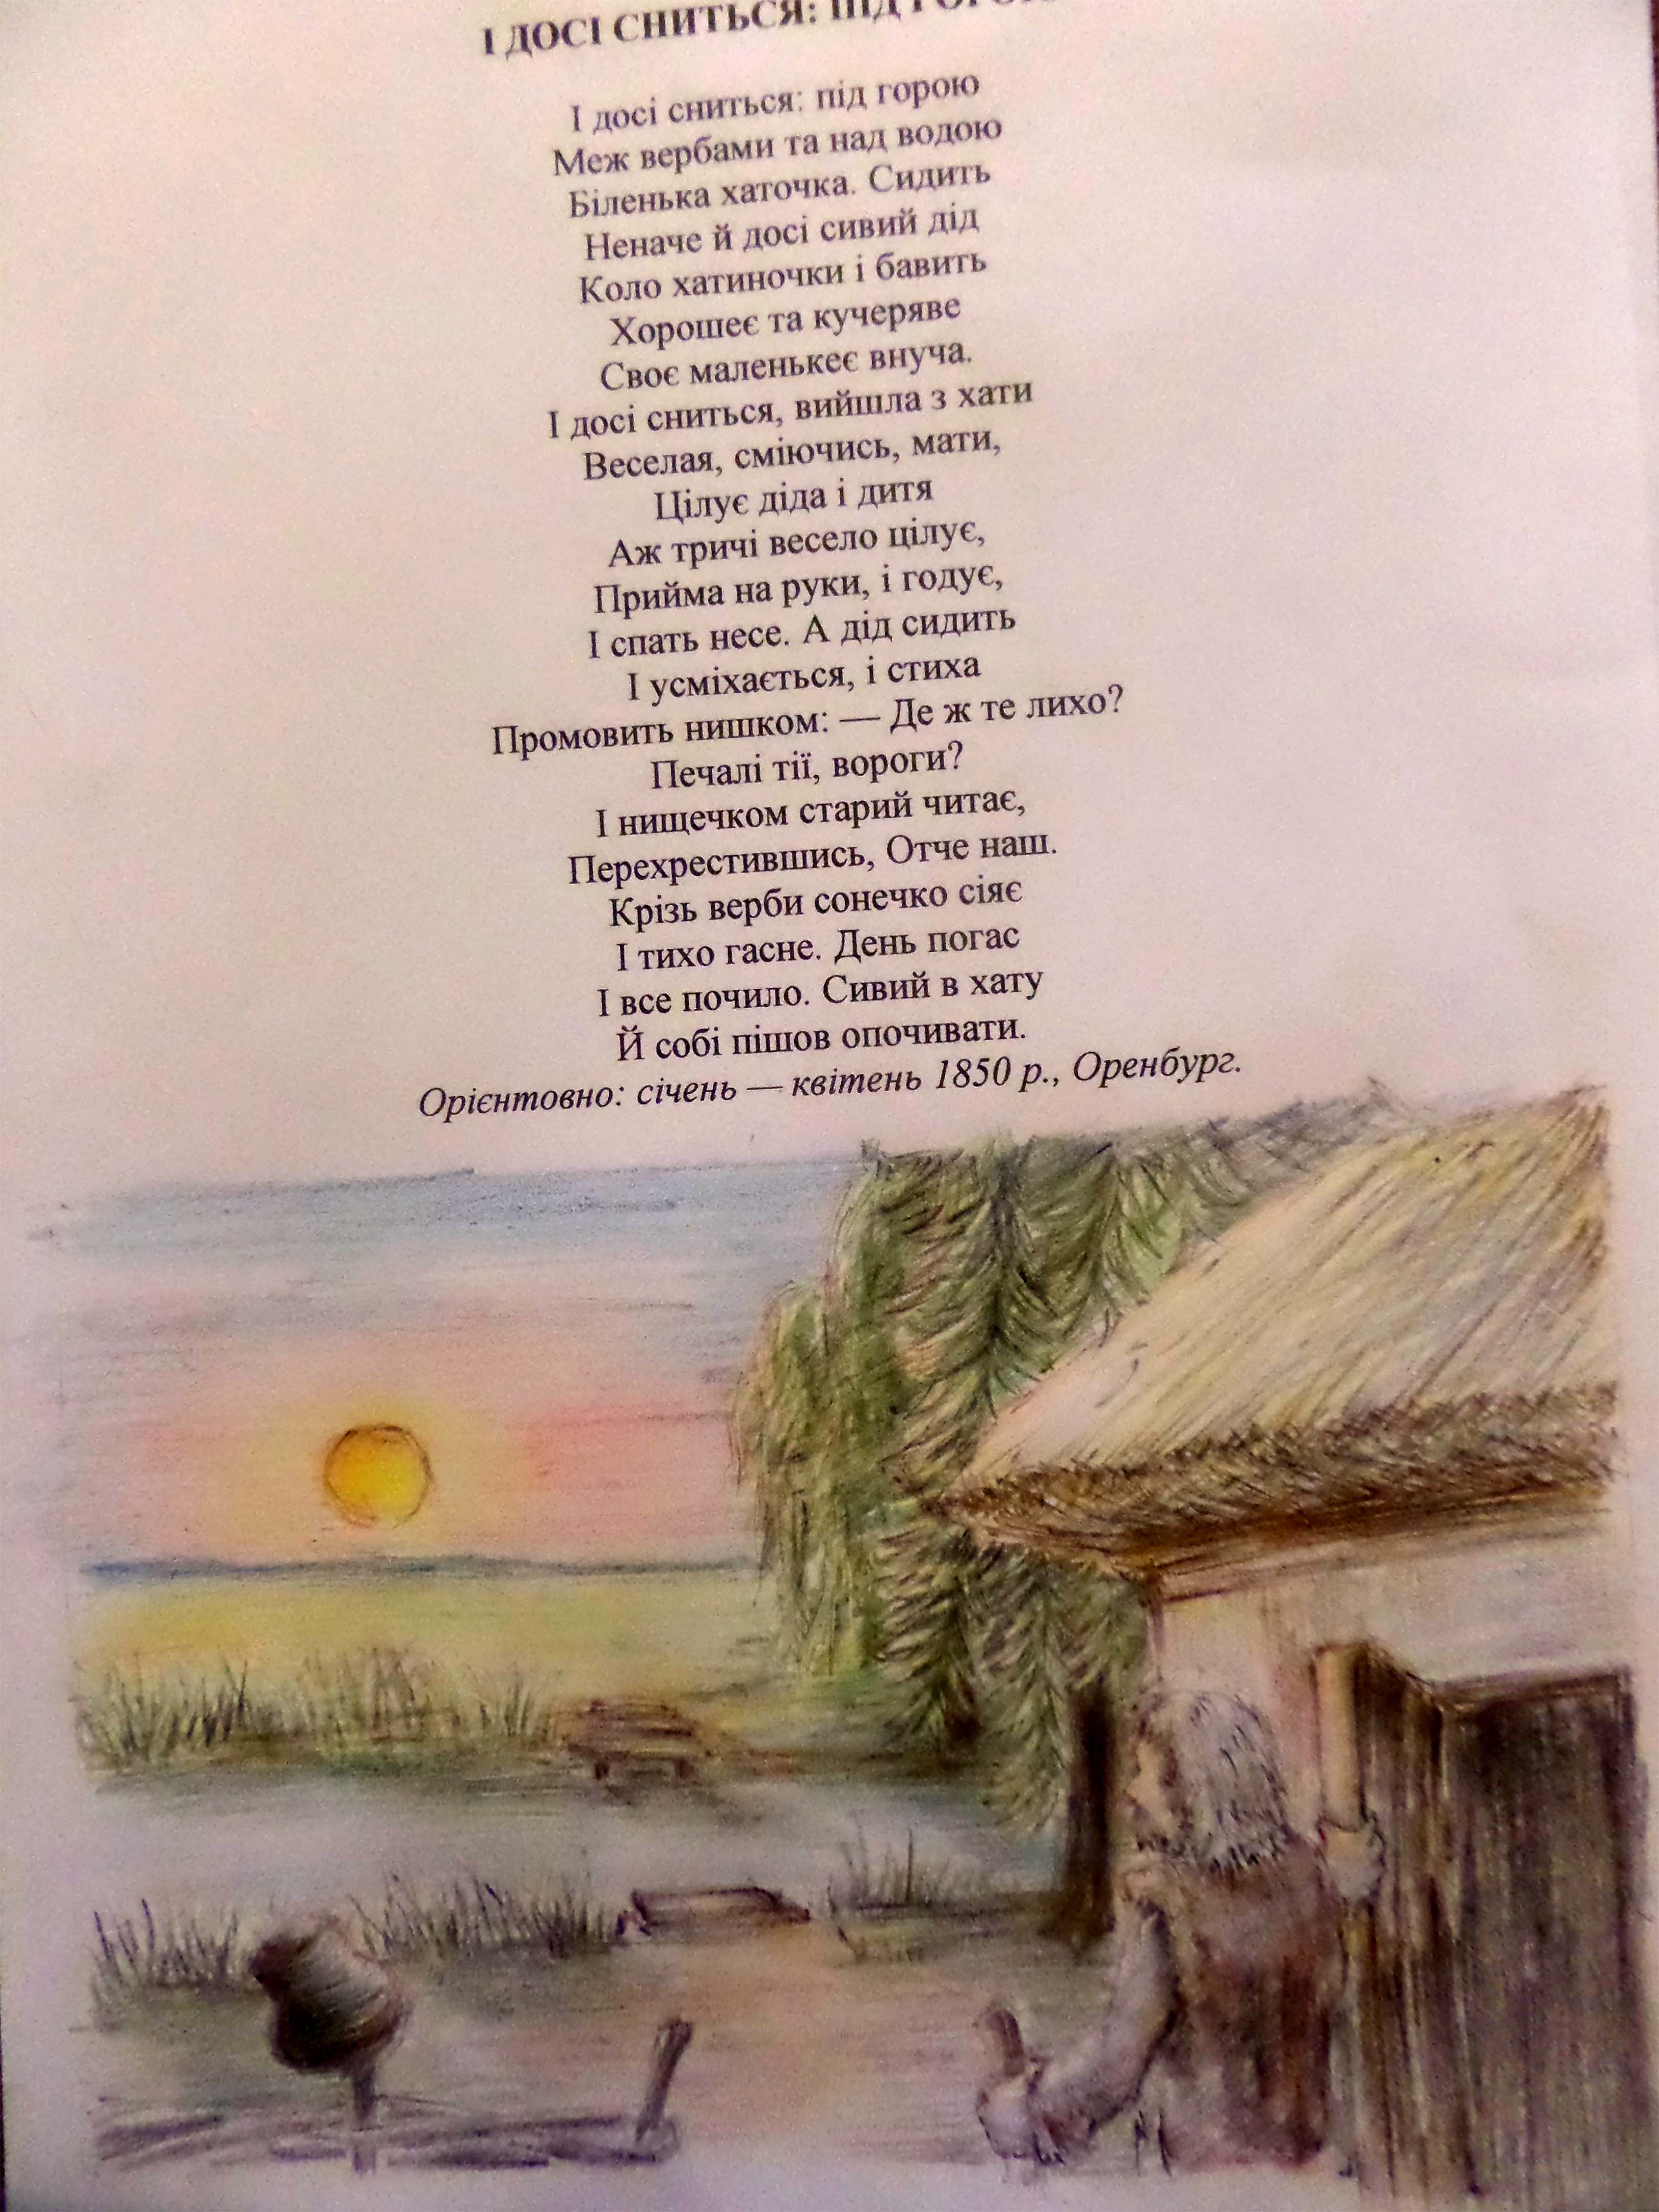 І ДОСІ СНИТЬСЯ: ПІД
І досі сниться: під горою
Меж вербами та над водою
Біленька хаточка. Сидить
Неначе й досі сивий дід
Коло хатиночки і бавить
Хорошеє та кучеряве
Своє маленькеє внуча.
І досі сниться, вийшла з хати
Веселая, сміючись, мати,
Цілує діда і дитя
Аж тричі весело цілує,
Прийма на руки, і годує,
І спать несе. А дід сидить
І усміхається, і стиха
Промовить нишком: — Де ж те лихо?
Печалі тії, вороги?
І нищечком старий читає,
Перехрестившись, Отче наш.
Крізь верби сонечко сіяє
І тихо гасне. День погас
І все почило. Сивий в хату
Й собі пішов опочивати.
Орієнтовно: січень — квітень 1850 р., Оренбург.